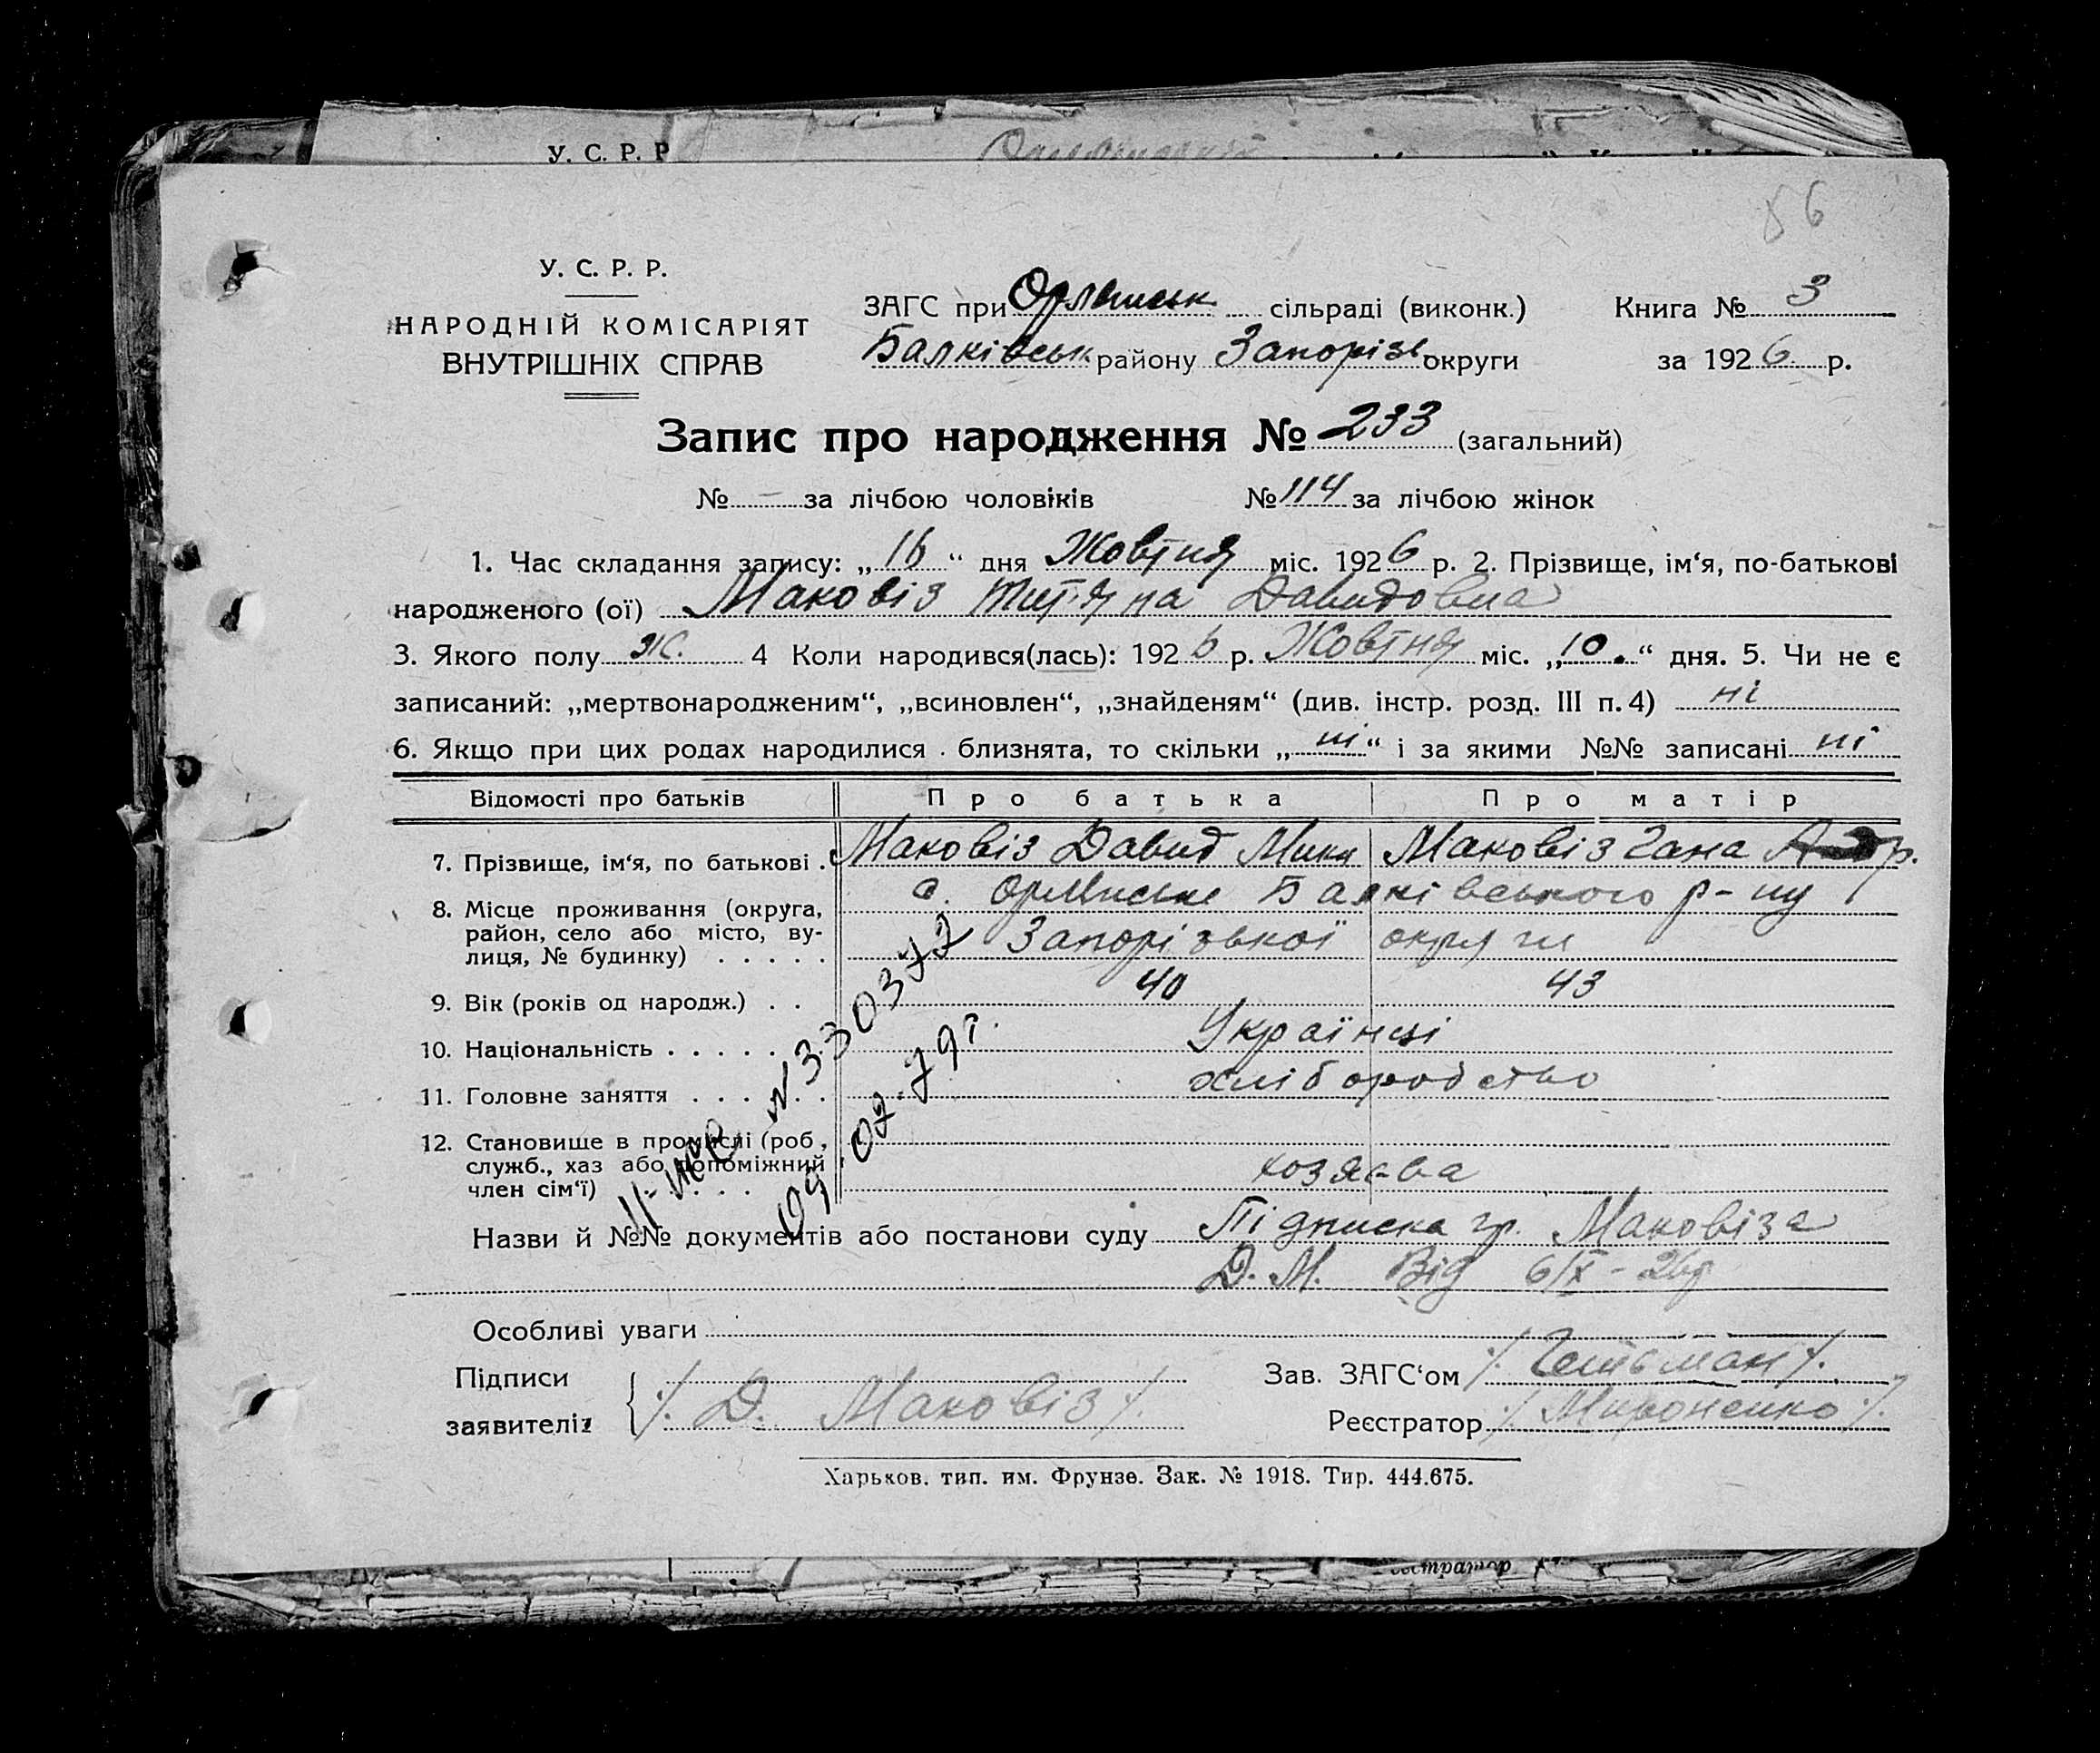 У. С. Р. Р
86
У. С. Р. Р.
НАРОДНІЙ КОМІСАРІЯТ
ВНУТРІШНІХ СПРАВ
ЗАГС при Орлянськ сільраді (виконк.)
Балківськ району Запорізь округи
Книга № 3
за 1926 р.
Запис про народження № 233 (загальний)
№ — за лічбою чоловіків № 114 за лічбою жінок
1. Час складання запису: „16“ дня Жовтня міс. 1926 р. 2. Прізвище, ім‘я, по-батькові
народженого (ої) Маковіз Титяна Давидовна
3. Якого полу ж. 4 Коли народився(лась): 1926 р. Жовтня міс. „10.“ дня. 5. Чи не є
записаний: „мертвонародженим“, „всиновлен“, „знайденям“ (див. інстр. розд. III п. 4) ні
6. Якщо при цих родах народилися близнята, то скільки „ні“ і за якими №№ записані ні
Відомості про батьків Про батька Про матір
7. Прізвище, ім‘я, по батькові . Маковіз Давид Мики Маковіз Гана
8. Місце проживання (округа, район, село або місто, вулиця, № будинку) . . . . . с. Орлянське Балківського р-ну
Запорізької округи
9. Вік (років од народж.) . . 40 43
10. Національність . . . . . Українці
11. Головне заняття . . . . . хліборобство
12. Становище в промислі (роб., служб., хаз або допоміжний член сім‘ї) . . . . хозяєва
II-ЖС №330372
09.02.79г.
Назви й №№ документів або постанови суду Підписка гр. Маковіза
Д. М. Від 6/X-26р
Особливі уваги
Підписи
заявителів /. Д. Маковіз /.
Зав. ЗАГС‘ом /. Гетьман /.
Реєстратор /. Мироненко /.
Харьков. тип. им. Фрунзе. Зак. № 1918. Тир. 444.675.